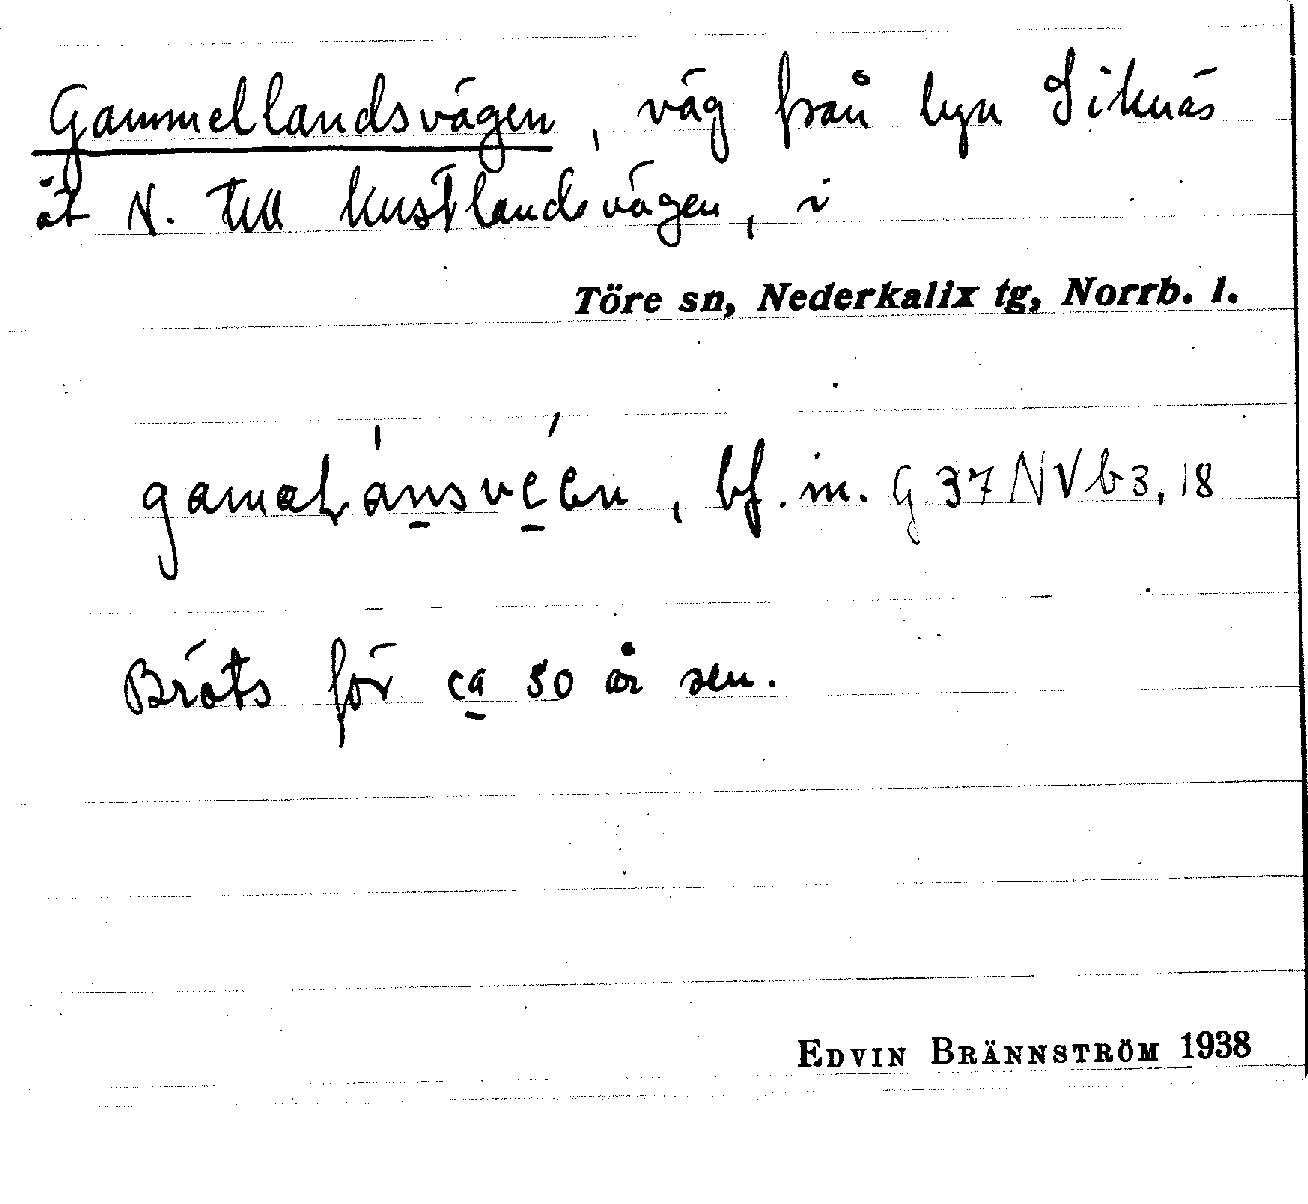 Gammellandsvägen, väg från byn Siknäs
åt N. till kustlandsvägen, i
Töre sn, Nederkalix tg, Norrb. l.
bf. m. G 37 NVb3, 18
Bröts för ca 50 år sen.
EDVIN BRÄNNSTRÖM 1938